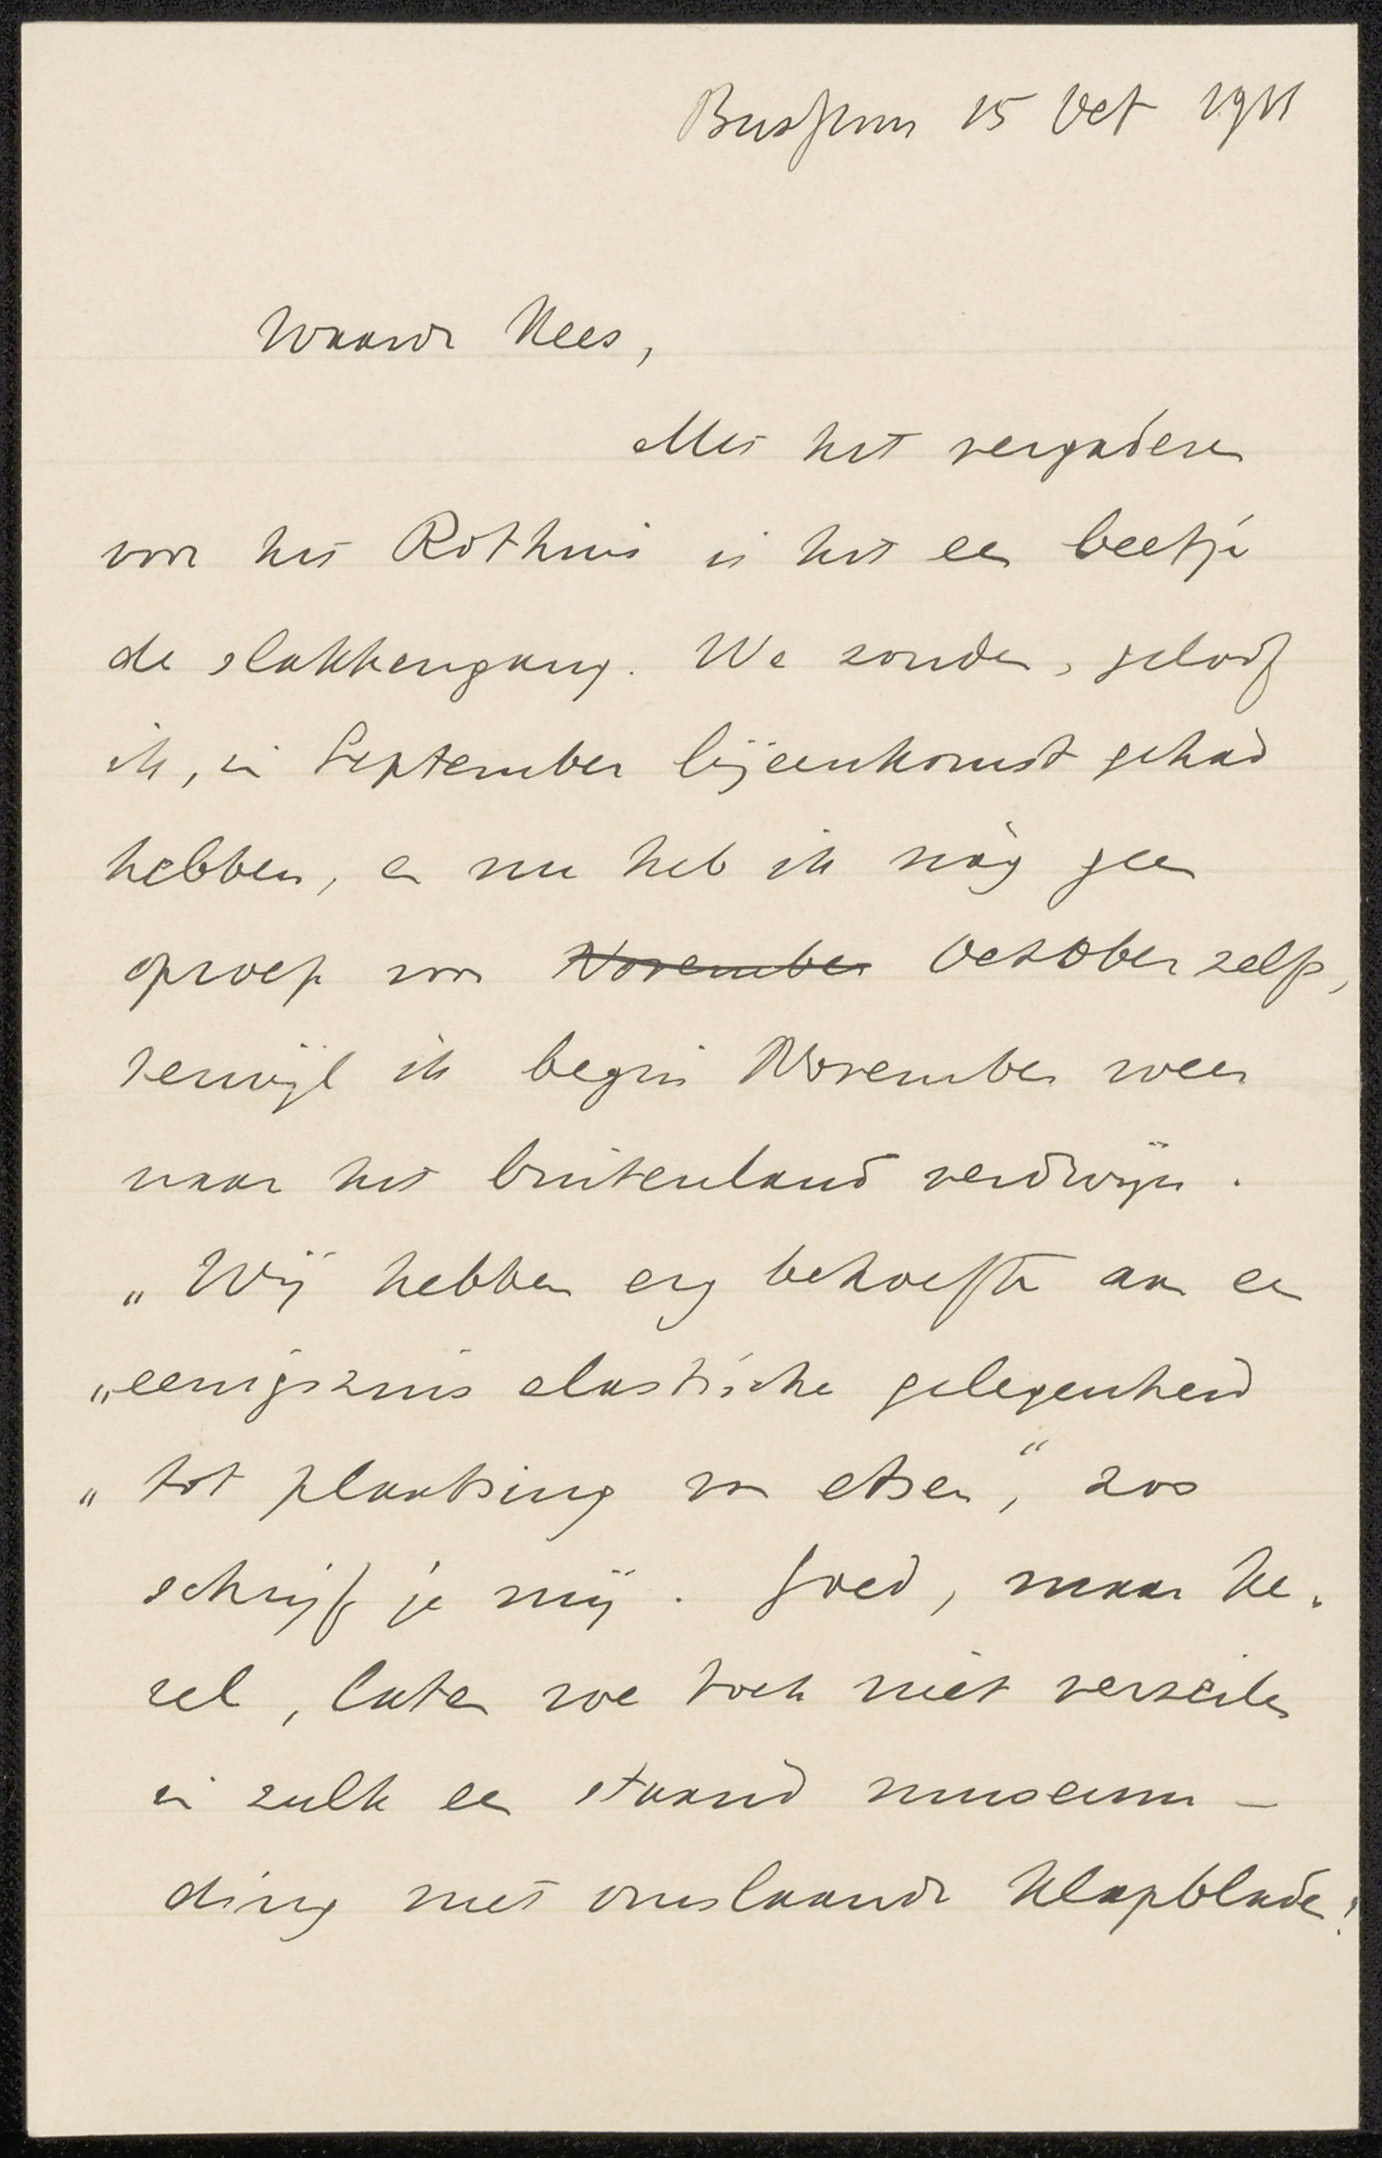 Bussum 15 Oct 1911
Waarde Kees,
Met het vergaderen
voor het Rothuis is het een beetje
de slakkengang. We zouden, geloof
ik, in September bijeenkomst gehad
hebben, en nu heb ik nòg geen
oproep voor ~~November~~ October zelfs,
terwijl ik begin November weer
naar het buitenland verdwijn.
„Wij hebben erg behoefte aan een
„eenigszins elastische gelegenheid
„tot plaatsing van etsen“, zoo
schrijf je mij. Goed, maar he-
mel, laten we toch niet verzeilen
in zulk een staand museum-
ding met omslaande klapbladen!